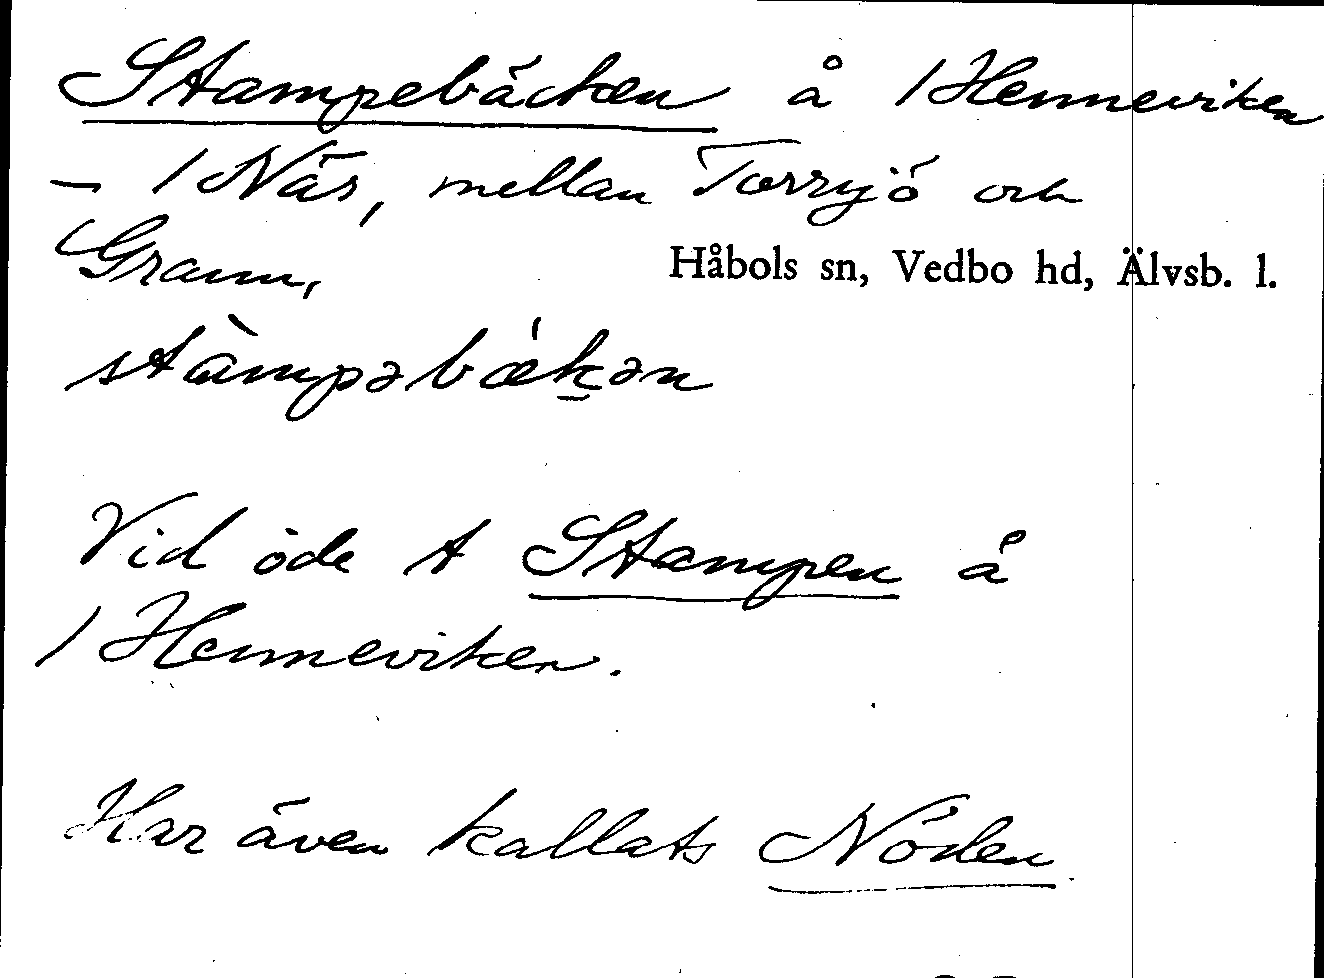 Stampebäcken å /Henneviken
– /Näs, mellan Torrsjö och
Grann,
Håbols sn, Vedbo hd, Älvsb. l.
stàmpəbækən
Vid öde t Stampen å
/Henneviken.
Har även kallats Nöden